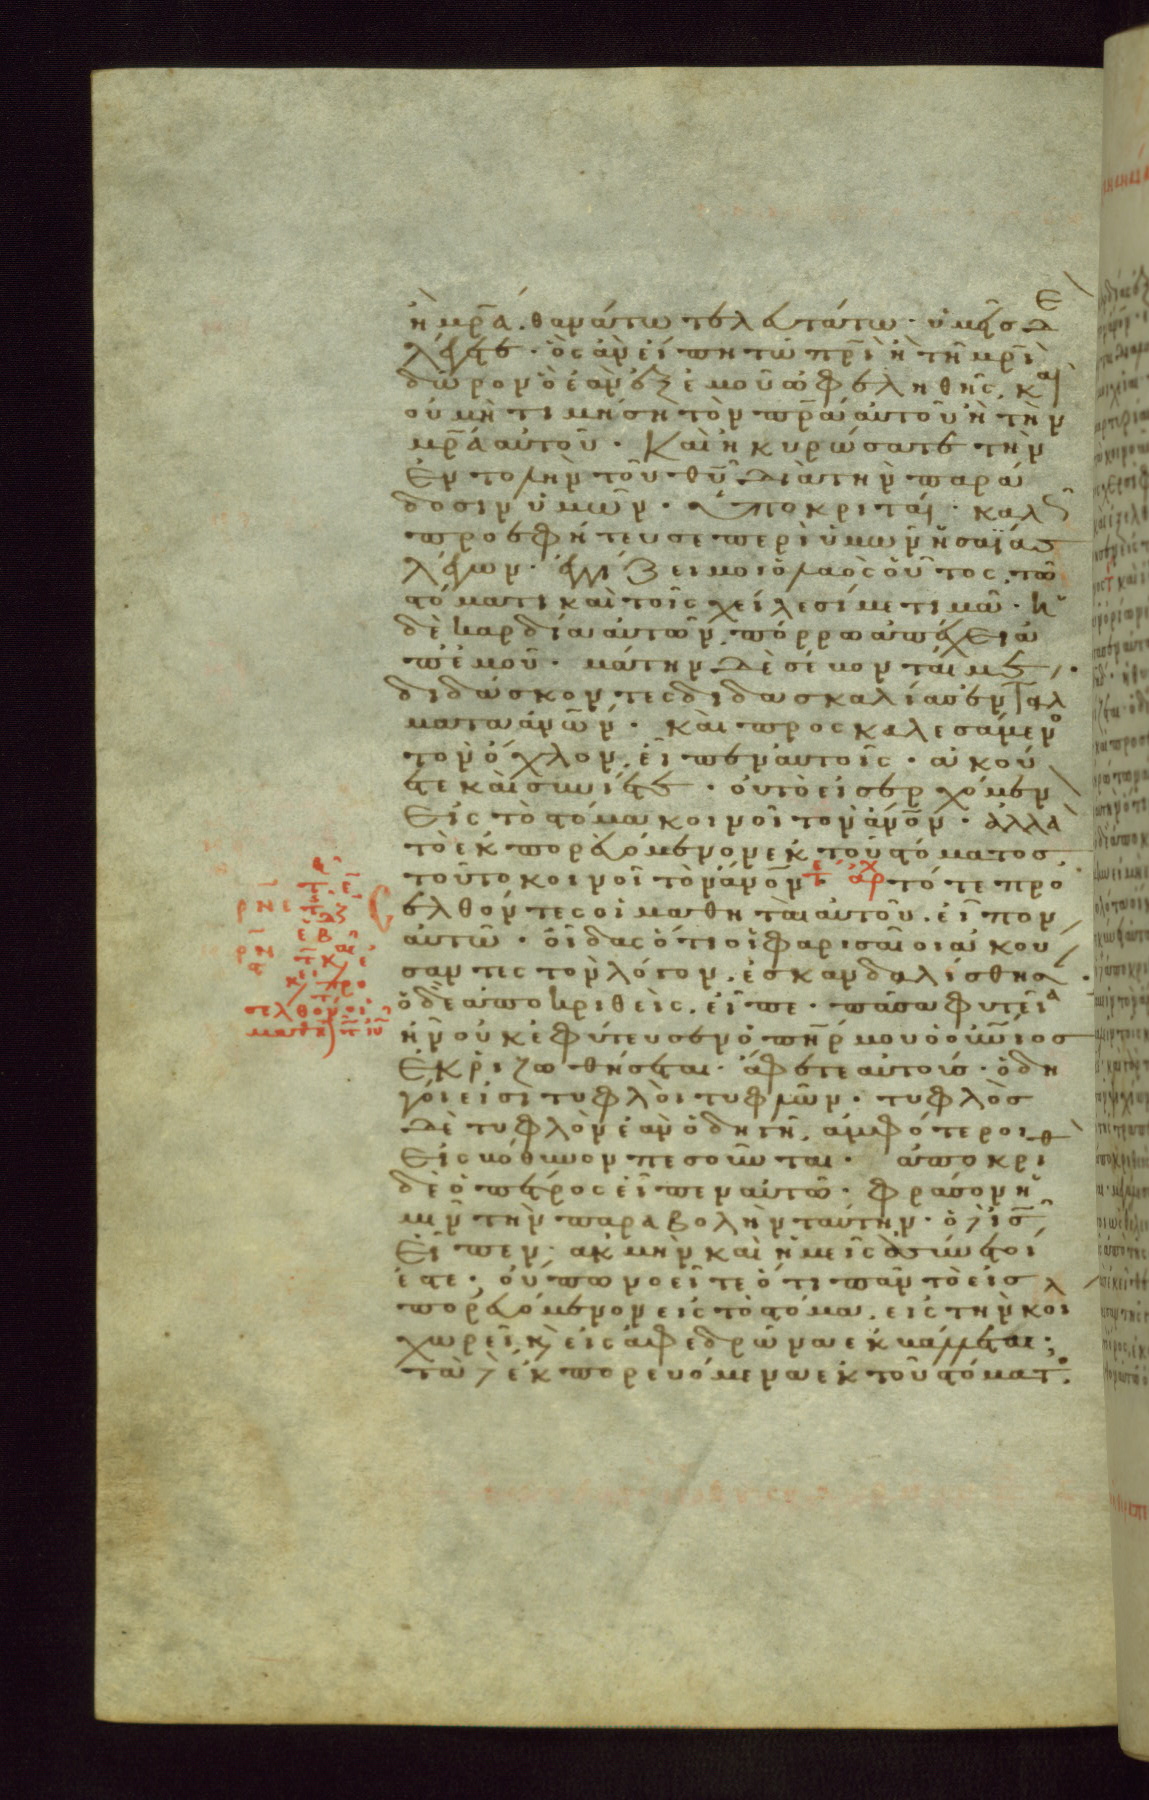 ἢ μρ̅α. θανάτω τελευτάτω· ὑμεῖς δὲ
λέγετε· ὃς ἂν εἴπη τῶ πρ̅ι ἢ τῆ μρ̅ι
δῶρον ὃ ἐὰν ἐξ ἐμοῦ ὠφεληθῆς, καὶ
οὐ μὴ τιμήση τὸν πρ̅α αὐτοῦ ἢ τὴν
μρ̅α αὐτοῦ· Καὶ ἠκυρώσατε τὴν
ἐντολὴν τοῦ θυ̅ διὰ τὴν παρά
δοσιν ὑμῶν· ὑποκριταί· καλῶς
προεφήτευσε περὶ ὑμῶν ἡσαΐας
λέγων· ἐγγίζει μοι ὁ λαὸς οὗτος, τῶ
στόματι καὶ τοῖς χείλεσί με τιμᾶ· ἡ
δὲ καρδία αὐτῶν, πόρρω ἀπέχει ἀ
π' ἐμοῦ· μάτην δὲ σέβονταί με,
διδάσκοντες διδασκαλίας ἐντάλ
ματα ἀνω̅ν· καὶ προσκαλεσάμενο
τὸν ὄχλον, εἶπεν αὐτοῖς· ἀκού
ετε καὶ συνίετε· οὐ τὸ εἰσερχόμεν
εἰς τὸ στόμα κοινοῖ τὸν ἀνο̅ν· ἀλλὰ
τὸ ἐκπορευόμενον ἐκ τοῦ στόματος
τοῦτο κοινοῖ τὸν ἀνο̅ν· τε ἀρχ τότε προ
ελθόντες οἱ μαθηταὶ αὐτοῦ. εἶπον
αὐτῶ· οἶδας ὅτι οἱ φαρισαῖοι ἀκού
σαντες τὸν λόγον, ἐσκανδαλίσθησα
ὁ δὲ ἀποκριθεὶς, εἶπε· πᾶσα φυτεία
ἣν οὐκ ἐφύτευσεν ὁ πη̅ρ μου ὁ οὐν̅ιος
ἐκριζωθήσεται· ἄφετε αὐτούς· ὁδη
γοί εἰσι τυφλοὶ τυφλῶν· τυφλὸς
δὲ τυφλὸν ἐὰν ὁδηγῆ, ἀμφότεροι
εἰς βόθυνον πεσοῦνται· ἀποκριθ
δὲ ὁ πέτρος εἶπεν αὐτῶ· φράσον ἡ
μῖν τὴν παραβολὴν ταύτην· ὁ δὲ ις̅
εἶπεν· ἀκμὴν καὶ ὑμεῖς ἀσύνετοί
ἐστε· οὔπω νοεῖτε ὅτι πᾶν τὸ εἰσ
πορευόμενον εἰς τὸ στόμα, εἰς τὴν κοιλ
χωρεῖ, καὶ εἰς ἀφεδρῶνα ἐκβάλλεται;
τὰ δὲ ἐκπορευόμενα ἐκ τοῦ στόματο
ρνε
ρν
καὶ
προ
σελθον οἱ
μαθη τ ιυ̅